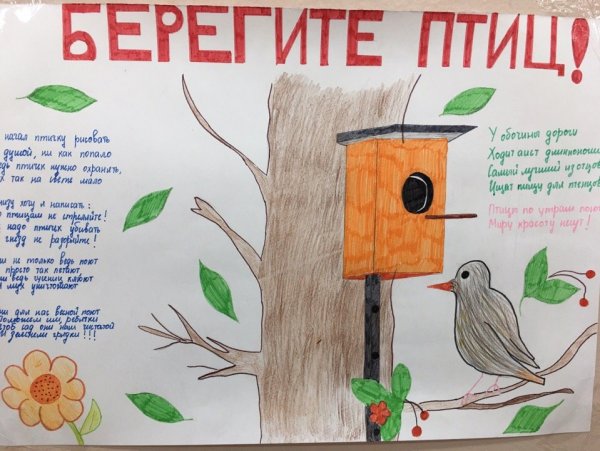 БЕРЕГИТЕ ПТИЦ!
начал птичку рисовать
душой, ни как попало
птичек нужно охранять,
так на свете мало
хочу я написать:
птицам не стреляйте!
надо птичек убивать
гнёзд не разоряйте!
не только ведь поют
просто так летают,
ведь гусениц клюют
мух уничтожают
для нас весной поют
им, ребятки
сад они нам
грядки!!!
У обочины дороги
Ходит аист длинноноги
Самый лучший из отцов
Ищет пищу для птенцов
Птицы по утрам поют
Миру красоту несут!